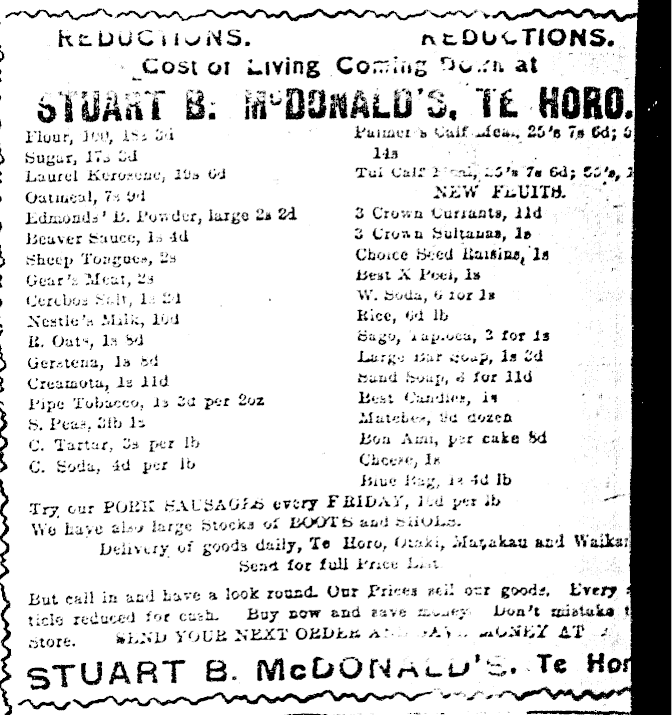 REDUCTIONS. REDUCTIONS.
Cost of Living Coming Down at
STUART B. McDONALD'S, TE HORO.
Flour, 100,
Sugar, 17s
Laurel Kerosene, 19s 6d
Oatmeal, 7s 9d
Edmonds' B. Powder, large 2s 2d
Beaver Sauce, 1s 4d
Sheep Tongues, 2s
Gear's Meat, 2s
Cerebos Salt, 1s
Nestle's Milk, 10d
R. Oats, 1s 8d
Gerstena, 1s 8d
Creamota, 1s 11d
Pipe Tobacco, 1s 3d per 2oz
S. Peas, 3lb 1s
C. Tartar, 3s per lb
C. Soda, 4d per lb
Palmer's Calf Meal, 25's 7s 6d;
14s
Tui Calf Meal, 25's 7s 6d; 50's,
NEW FRUITS.
3 Crown Currants, 11d
3 Crown Sultanas, 1s
Choice Seed Raisins, 1s
Best X Peel, 1s
W. Soda, 6 for 1s
Rice, 6d lb
Sago, Tapioca, 3 for 1s
Large Bar Soap, 1s 3d
Sand Soap, 3 for 11d
Best Candles, 1s
Matches, 9d dozen
Bon Ami, per cake 8d
Cheese, 1s
Blue Bag, 1s 4d lb
Try our PORK SAUSAGES every FRIDAY, 10d per lb
We have also large Stocks of BOOTS and SHOES.
Delivery of goods daily, Te Horo, Otaki, Manakau and Waikan
Send for full Price List
But call in and have a look round. Our Prices sell our goods. Every
ticle reduced for cash. Buy now and save money. Don't mistake
Store. SEND YOUR NEXT ORDER AND SAVE MONEY AT
STUART B. McDONALD'S, Te Hor